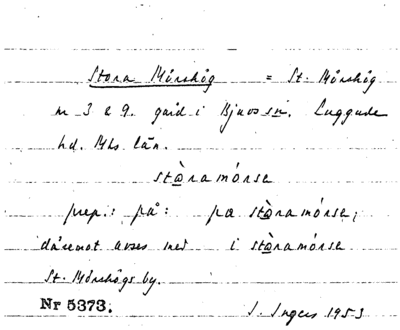 Stora Mörshög = St. Mörshög
nr 3 & 9. gård i Bjuvs sn. Luggude
hd. Mhs län.
stὼramórse
prep.: på: pæ stὼramórse,
däremot avses med i stὼramórse
St. Mörshögs by.
Nr 5373. I. Ingers 1953